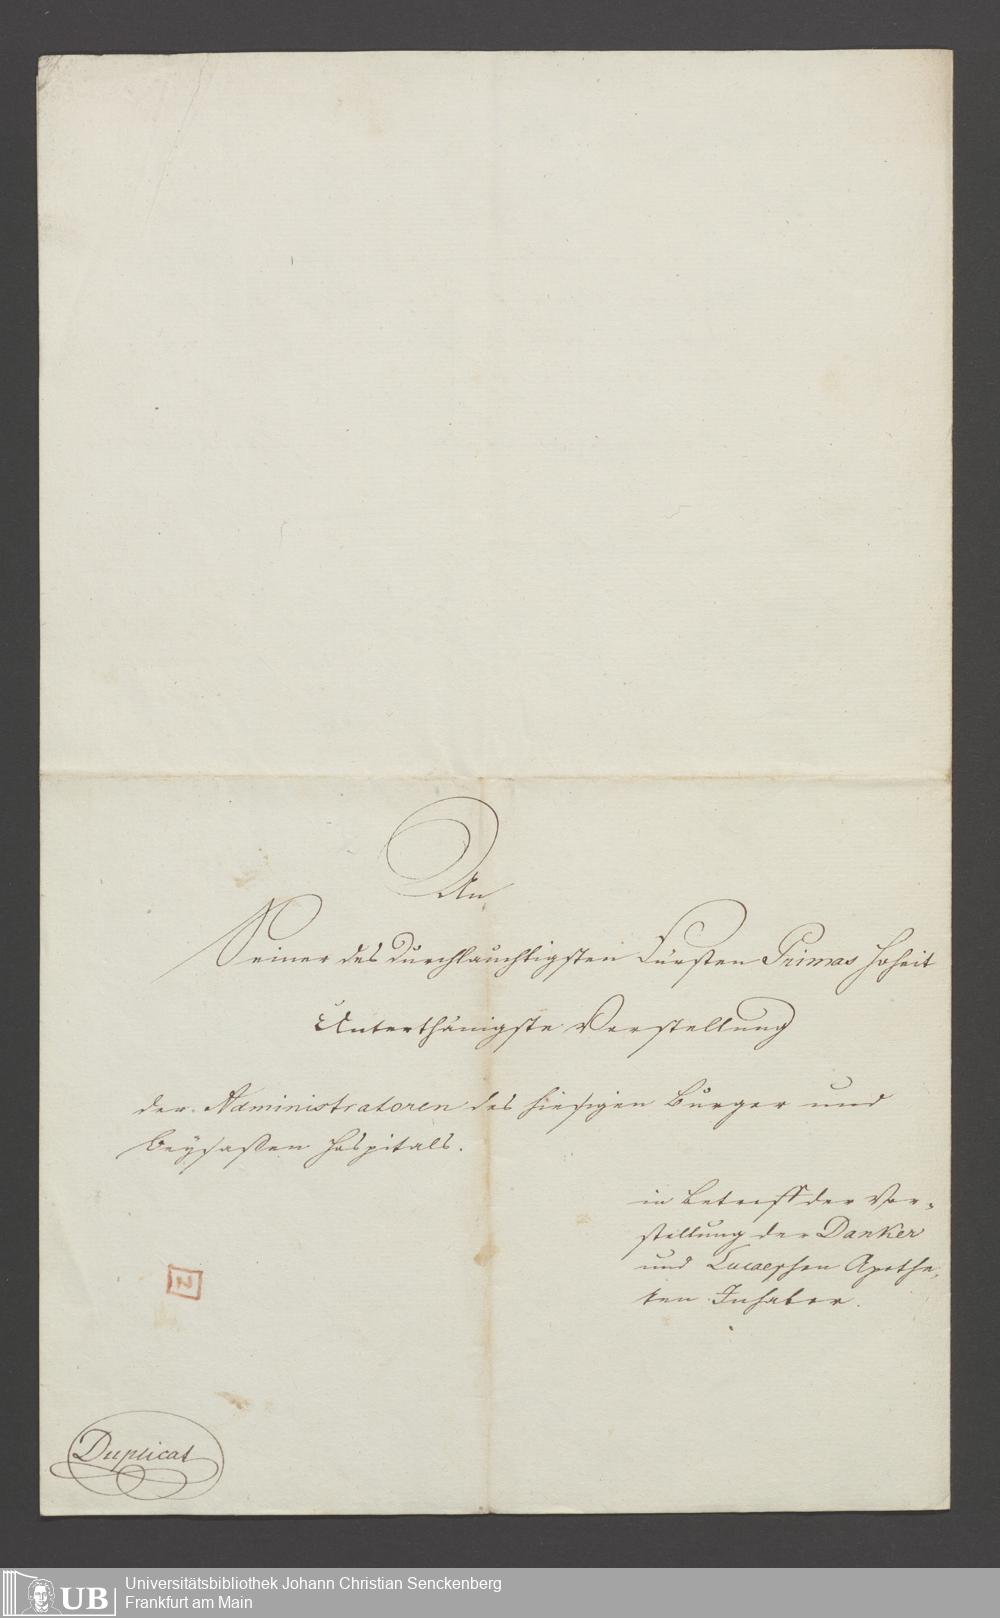 An
Seiner des Durchlauchtigsten Fürsten Primas Hoheit
Unterthänigste Vorstellung
der Administratoren des hiesigen Bürger und
Beysaßen Hospitals.
in Betreff der Vor-
stellung der Danker
und Apothe,
ken Inhaber.
2
Duplicat
UB Universitätsbibliothek Johann Christian Senckenberg
Frankfurt am Main